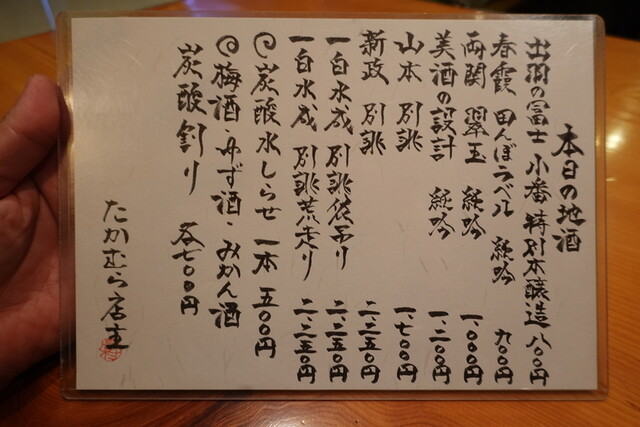 本日の地酒
出羽の冨士 小番 特別本醸造 八〇〇円
春霞 田んぼラベル 純吟 九〇〇円
両関 翠玉 純吟 一、〇〇〇円
美酒の設計 純吟 一、二〇〇円
山本 別誂 一、七〇〇円
新政 別誂 二、二五〇円
一白水成 別誂袋吊り 二、二五〇円
一白水成 別誂荒走り 二、二五〇円
◎炭酸水しらせ 一本 五〇〇円
◎梅酒・ゆず酒・みかん酒
炭酸割り 各七〇〇円
たかむら店主